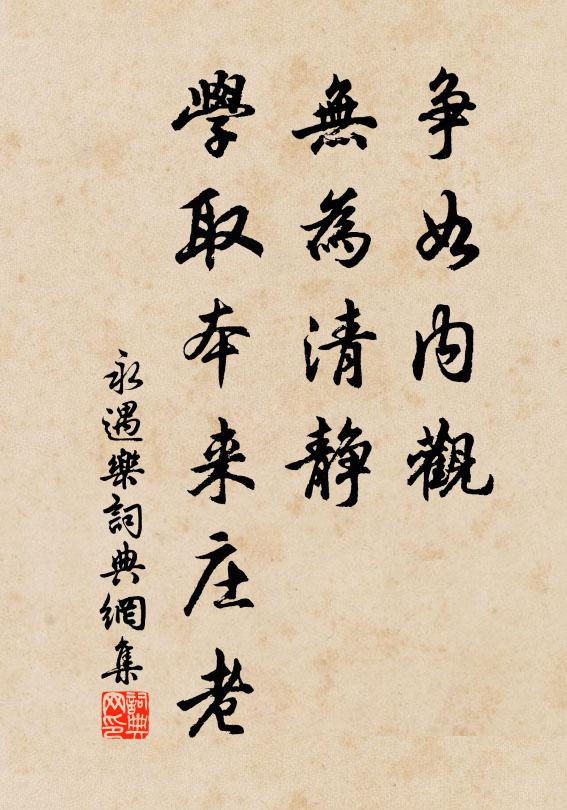 争如内觀
無為清静
學取本来庄老
永遇樂詞典網集
詞典网印